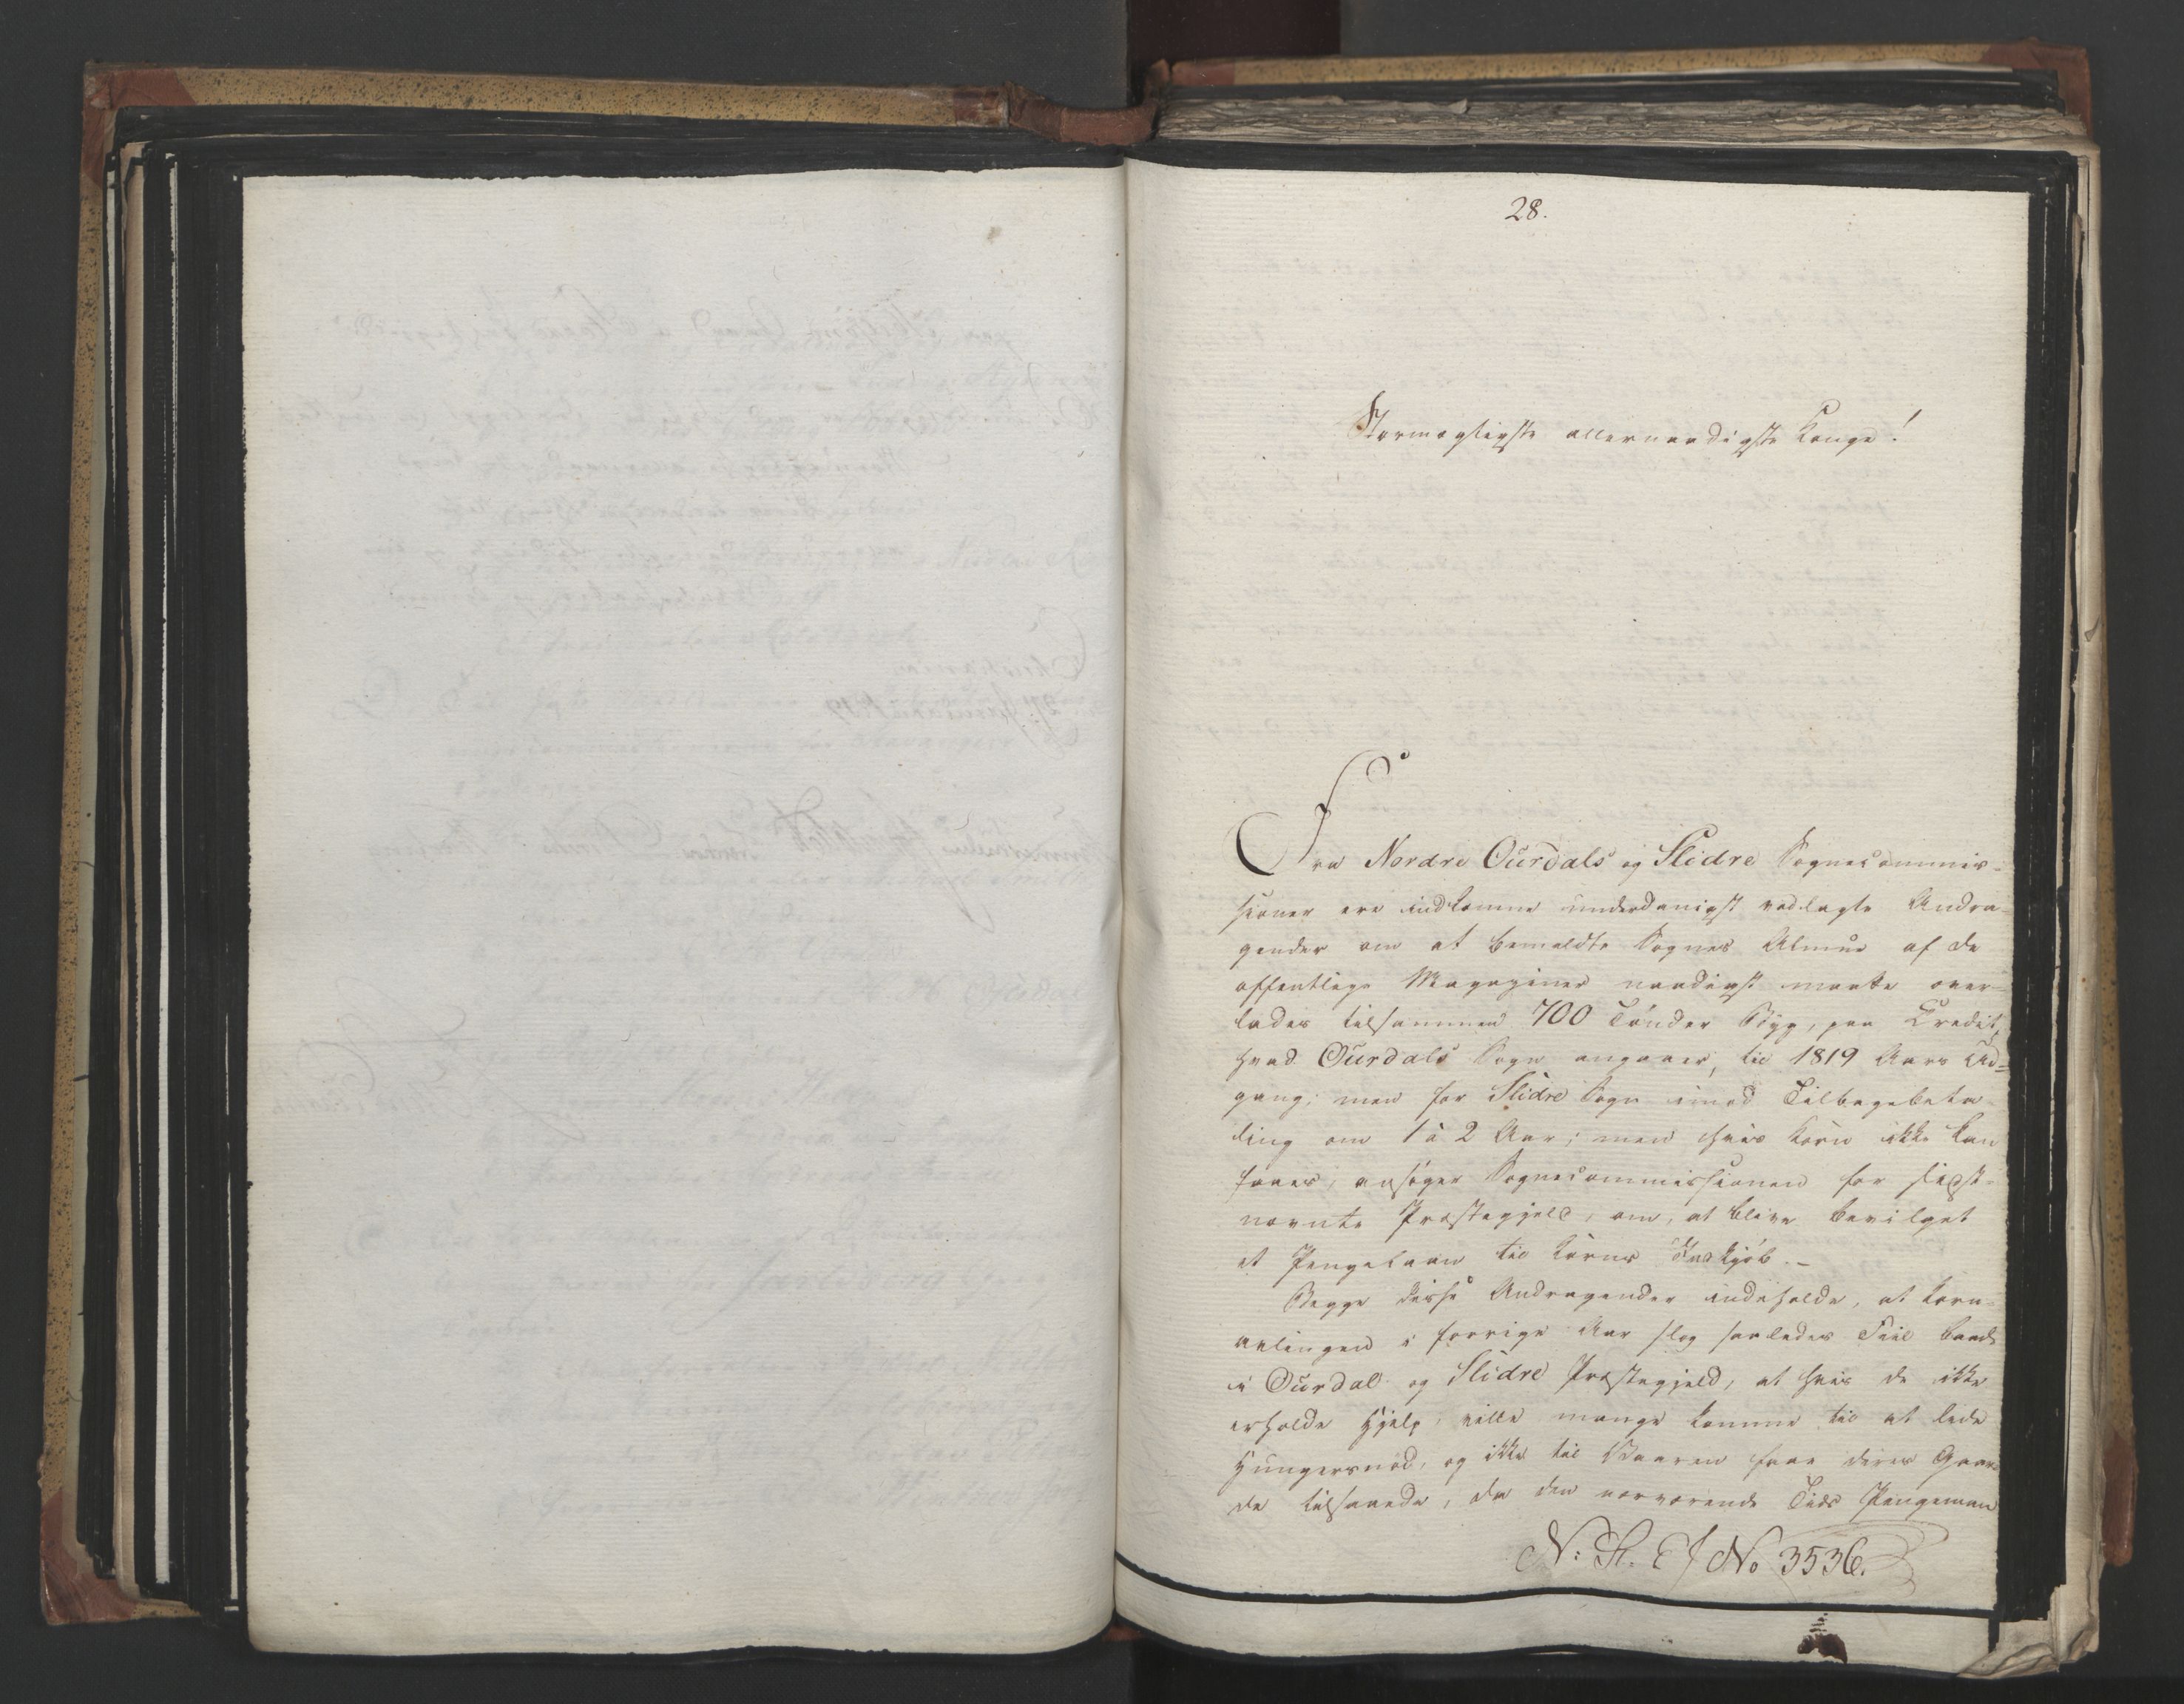 28.
Stormægtigste allernaadigste Konge!
Fra Nordre Ourdals og Slidre Sognecommis-
sioner ere indkomne underdanigst vedlagte Andra-
gender om at bemeldte Sognes Almue af de
offentlige Magaziner naadigst maatte over-
lades tilsammen 700 Tönder Byg, paa Credit,
hvad Ourdals Sogn angaaer, til 1819 Aars Ud-
gang; men for Slidre Sogn imod Tilbagebeta-
ling om 1 à 2 Aar; men hvis Korn ikke kan
faaes, ansöger Sognecommissionen for sidst-
nævnte Præstegjeld, om, at blive bevilget
et Pengelaan til Korns Indkjöb.-
Begge disse Andragender indeholde, at Korn-
avlingen i forrige Aar slog saaledes Feil baade
i Ourdal og Slidre Præstegjeld, at hvis de ikke
erholde Hjelp, ville mange komme til at lide
Hungersnöd, og ikke til Vaaren faae deres Gaar-
de tilsaaede, da den nærværende Tids Pengeman
N: St. E / No 3536.